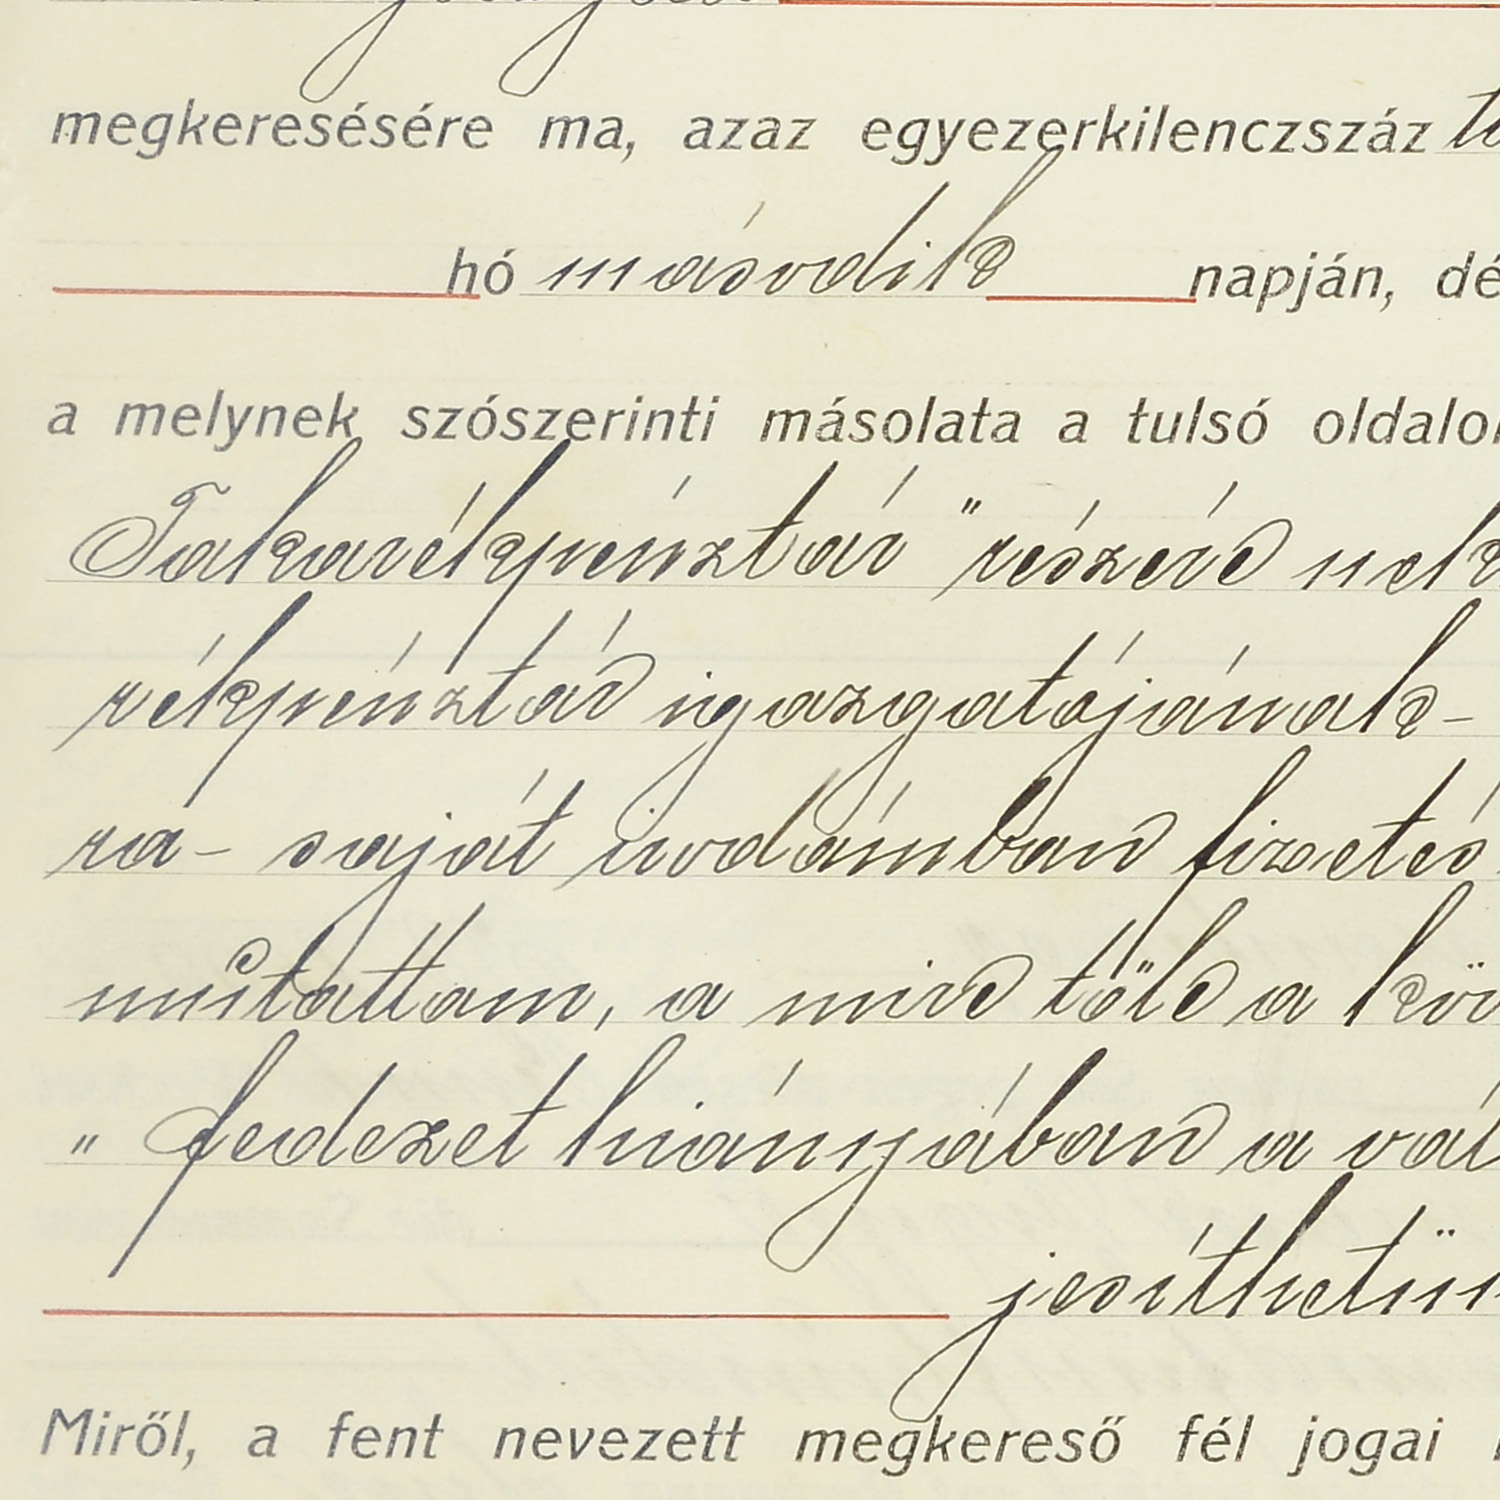 megkeresésére ma, azaz egyezerkilenczszáz
hó második napján, dé
a melynek szószerinti másolata a tulsó oldalon
Takarékpénztár" részére nek
rékpénztár igazgatójának-
ra- saját irodámban fizetés
mutattam, a mire tőle a köv
"fedezet hiányában a vál
jesíthetün
Miről, a fent nevezett megkereső fél jogai